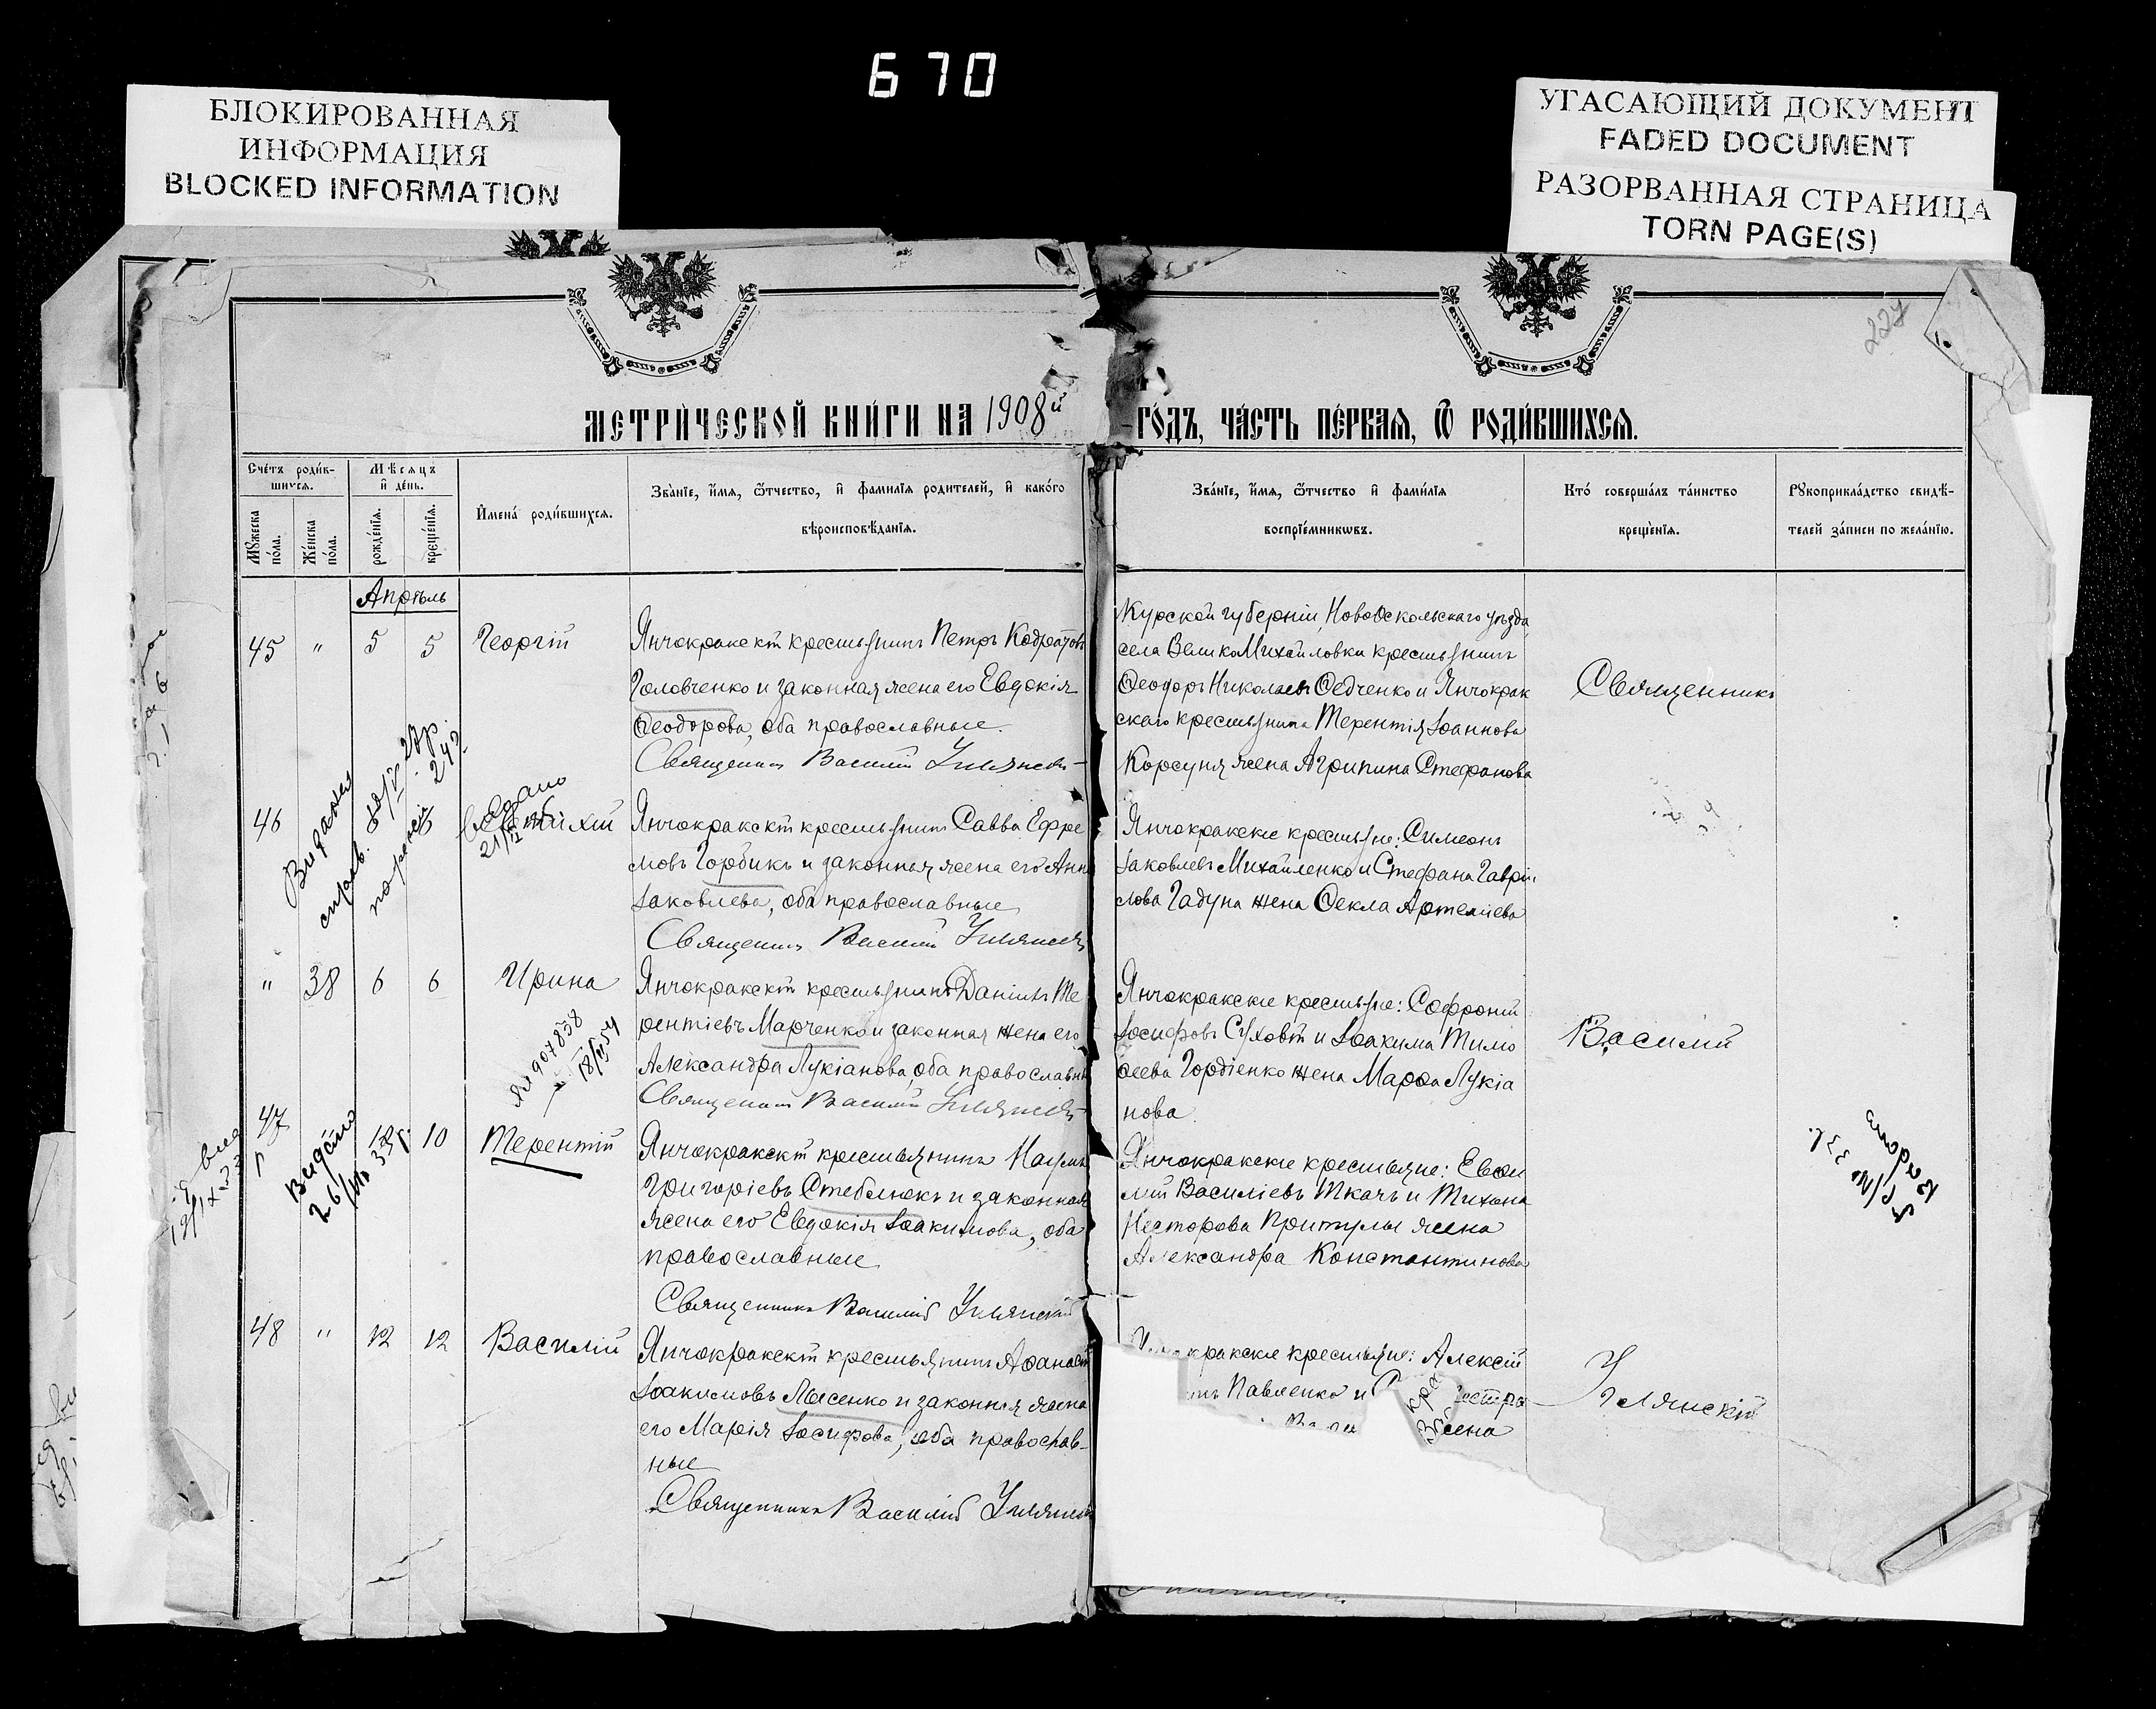 670
БЛОКИРОВАННАЯ
ИНФОРМАЦИЯ
BLOCKED INFORMATION
УГАСАЮЩИЙ ДОКУМЕНТ
FADED DOCUMENT
РАЗОРВАННАЯ СТРАНИЦА
TORN PAGE(S)
227
МЕТРИ́ЧЕСКОЙ КНИ́ГИ НА 1908й
ГО́ДЪ, ЧА́СТЬ ПЕ́РВАЯ, Ѿ РОДИ́ВШИХСЯ.
Сче́тъ роди́в-
шихся.
Мѣсяцъ
и де́нь.
Мꙋжеска
по́ла.
Же́нска
по́ла.
рожде́нїя.
креще́нїя.
Имена́ роди́вшихся.
Зва́нїе, и́мя, ѻ҆́тчество, и фами́лїя родителей, и како́го
вѣроисповѣ́данїя.
Зва́нїе, и́мя, ѻ҆́тчество и фами́лїя
воспрїе́мниковъ.
Кто́ соверша́лъ та́инство
креще́нїя.
Рꙋкоприкла́дство свидѣ́-
телей за́писи по жела́нїю.
Апрѣль
45 " 5 5 Георгій
Янчокракскій крестьянинъ Петръ Кодратовъ
Головченко и законная жена его Евдокія
Ѳеодорова, оба православные.
Священникъ Василій Улянскій
Курской губерніи, НовоОскольскаго уѣзда,
села ВеликоМихайловки крестьянинъ
Ѳеодоръ Николаевъ Ѳедченко и Янчокрак
скаго крестьянина Терентія Іоаннова
Корсуня жена Агрипина Стефанова
Священникъ
46
Янчокракскій крестьянинъ Савва Ефре
мовъ Горбикъ и законная жена его Анна
Іаковлева, оба православные
Священникъ Василій Улянскій
Янчокракскіе крестьяне: Симеонъ
Іаковлевъ Михайленко и Стефана Гаврі
лова Гадуна жена Ѳекла Артеміева
" 38 6 6 Ирина
Янчокракскій крестьянинъ Даніилъ Те
рентіевъ Марченко и законная жена его
Александра Лукіанова, оба православны
Священникъ Василій Улянскій
Янчокракскіе крестьяне: Софроній
Іосифовъ Суховій и Іоакима Тимо
ѳеева Гордіенко жена Марѳа Лукіа
нова
Василій
47 10 Терентій
Выдано
Янчокракскій крестьянинъ Наумъ
Григоріевъ Стеблюкъ и законная
жена его Евдокія Іоакимова, оба
православные
Священникъ Василій Улянскій
Янчокракскіе крестьяне: Евѳи
мій Василіевъ Ткачъ и Тихона
Несторова Притулы жена
Александра Константинова
48 " 12 12 Василій
Янчокракскій крестьянинъ Аѳанасій
Іоакимовъ Лысенко и законная жена
его Марія Іосифова, оба православ-
ные
Священникъ Василій Улянскій
кракскіе крестьяне: Алексій
Павленко и
жена
Улянскій